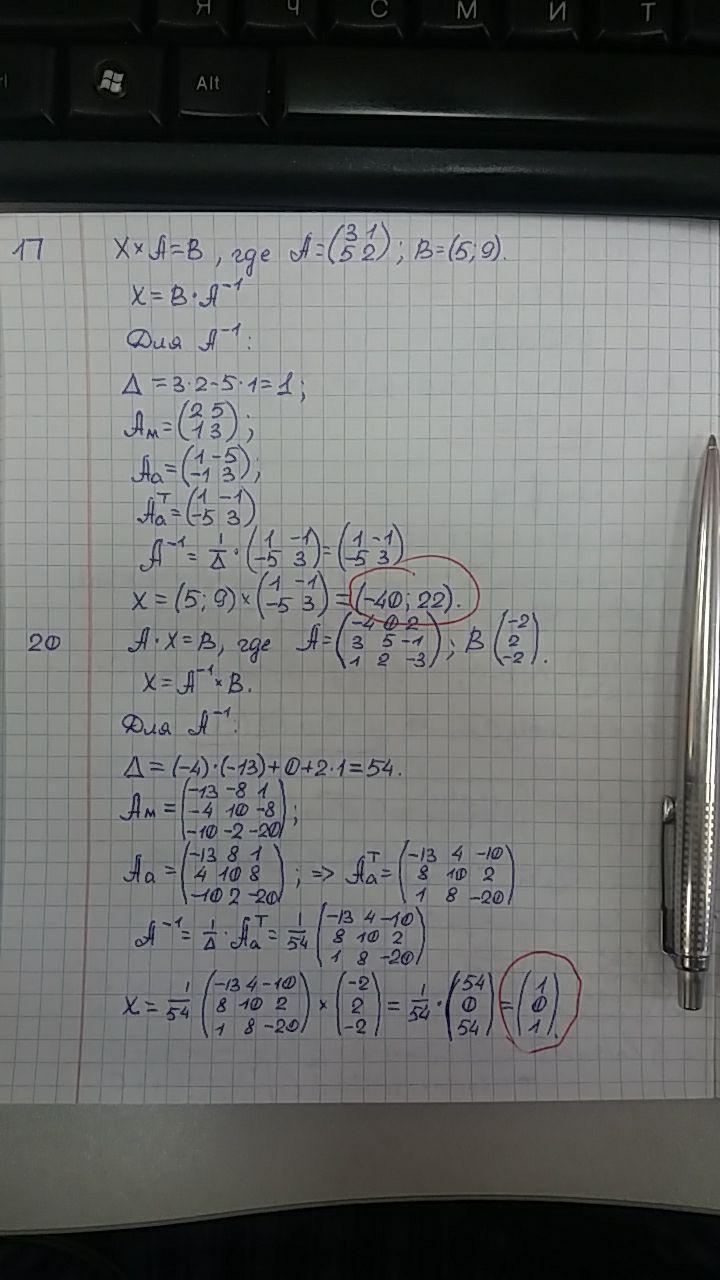 Я Ч С М И Т
rl Alt
17 X×A=B, где A=(3 1; 5 2); B=(5; 9).
X=B·A⁻¹
Для A⁻¹:
Δ=3·2-5·1=1;
Aм=(2 5; 1 3);
Aa=(1 -5; -1 3);
Aaᵀ=(1 -1; -5 3)
A⁻¹=1/Δ·(1 -1; -5 3)=(1 -1; -5 3)
X=(5; 9)×(1 -1; -5 3)=(-40; 22).
20 A·X=B, где A=(-4 0 2; 3 5 -1; 1 2 -3); B(-2; 2; -2).
X=A⁻¹×B.
Для A⁻¹:
Δ=(-4)·(-13)+0+2·1=54.
Aм=(-13 -8 1; -4 10 -8; -10 -2 -20);
Aa=(-13 8 1; 4 10 8; -10 2 -20); => Aaᵀ=(-13 4 -10; 8 10 2; 1 8 -20)
A⁻¹=1/Δ·Aaᵀ=1/54(-13 4 -10; 8 10 2; 1 8 -20)
X=1/54(-13 4 -10; 8 10 2; 1 8 -20)×(-2; 2; -2)=1/54·(54; 0; 54)=(1; 0; 1).